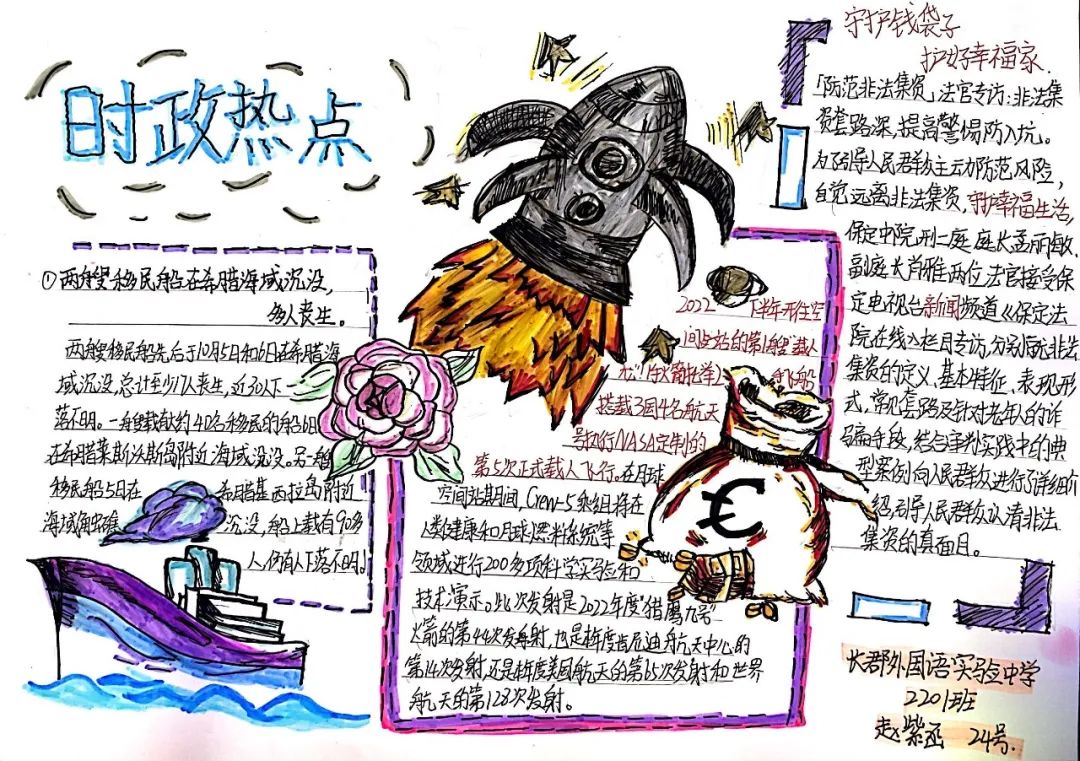 时政热点
①两艘移民船在希腊海域沉没,
多人丧生。
两艘移民船先后于10月5日和6日在希腊海
域沉没,总计至少17人丧生,近30人下
落不明。一艘载有约40名移民的船6日
在希腊莱斯沃斯岛附近海域沉没。另一艘
移民船5日在希腊基西拉岛附近
海域触礁沉没,船上载有90多
人,仍有人下落不明!
2022下半年开往空
间站的第1艘载人
飞船
搭载3国4名航天
号执行NASA定制的
第5次正式载人飞行。在月球
空间站期间,Crew-5乘组将在
人类健康和月球燃料系统等
领域进行200多项科学实验和
技术演示。此次发射是2022年度"猎鹰九号"
火箭的第44次发射,也是本年度肯尼迪航天中心的
第14次发射,还是本年度美国航天的第65次发射和世界
航天的第128次发射。
守护钱袋子
护好幸福家.
「防范非法集资」法官专访:非法集
资套路深,提高警惕防入坑。
为了引导人民群众主动防范风险,
自觉远离非法集资,守护幸福生活,
保定中院刑二庭庭长孟丽敏,
副庭长肖雅两位法官接受保
定电视台新闻频道《保定法
院在线》栏目专访,分别就非法
集资的定义、基本特征、表现形
式,常见套路及针对老年人的诈
骗手段,结合审判实践中的典
型案例向人民群众进行了详细介
绍,引导人民群众认清非法
集资的真面目。
长郡外国语实验中学
2201班
赵紫函 24号.